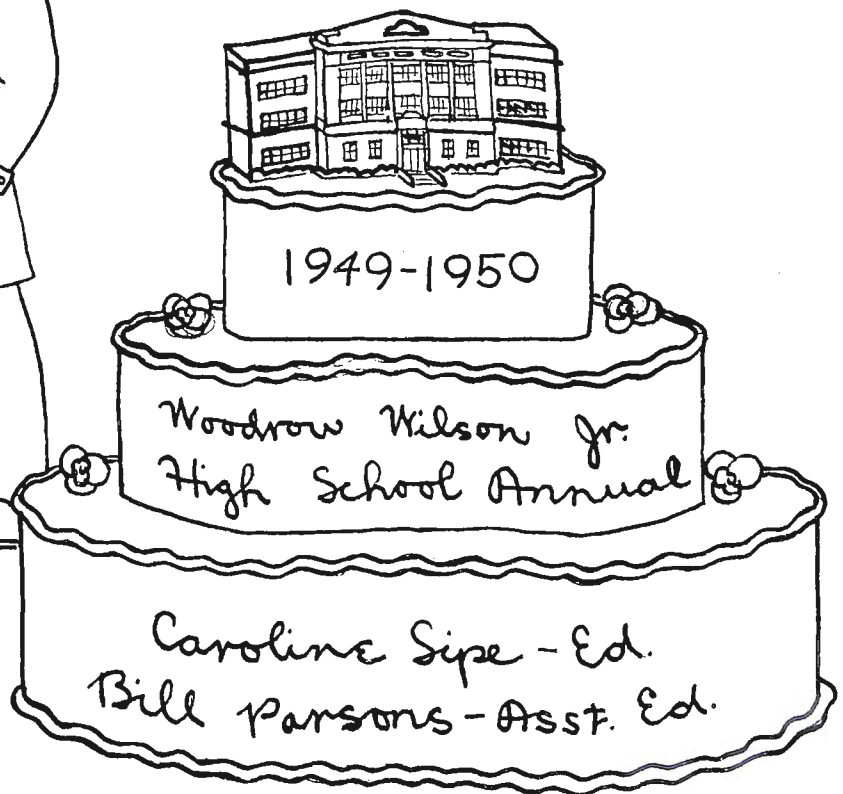 1949-1950
Woodrow Wilson Jr.
High School Annual
Caroline Sipe - Ed.
Bill Parsons - Asst. Ed.